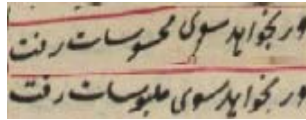 ور بخواهد سوی محسوسات رفت
ور بخواهد سوی ملبوسات رفت